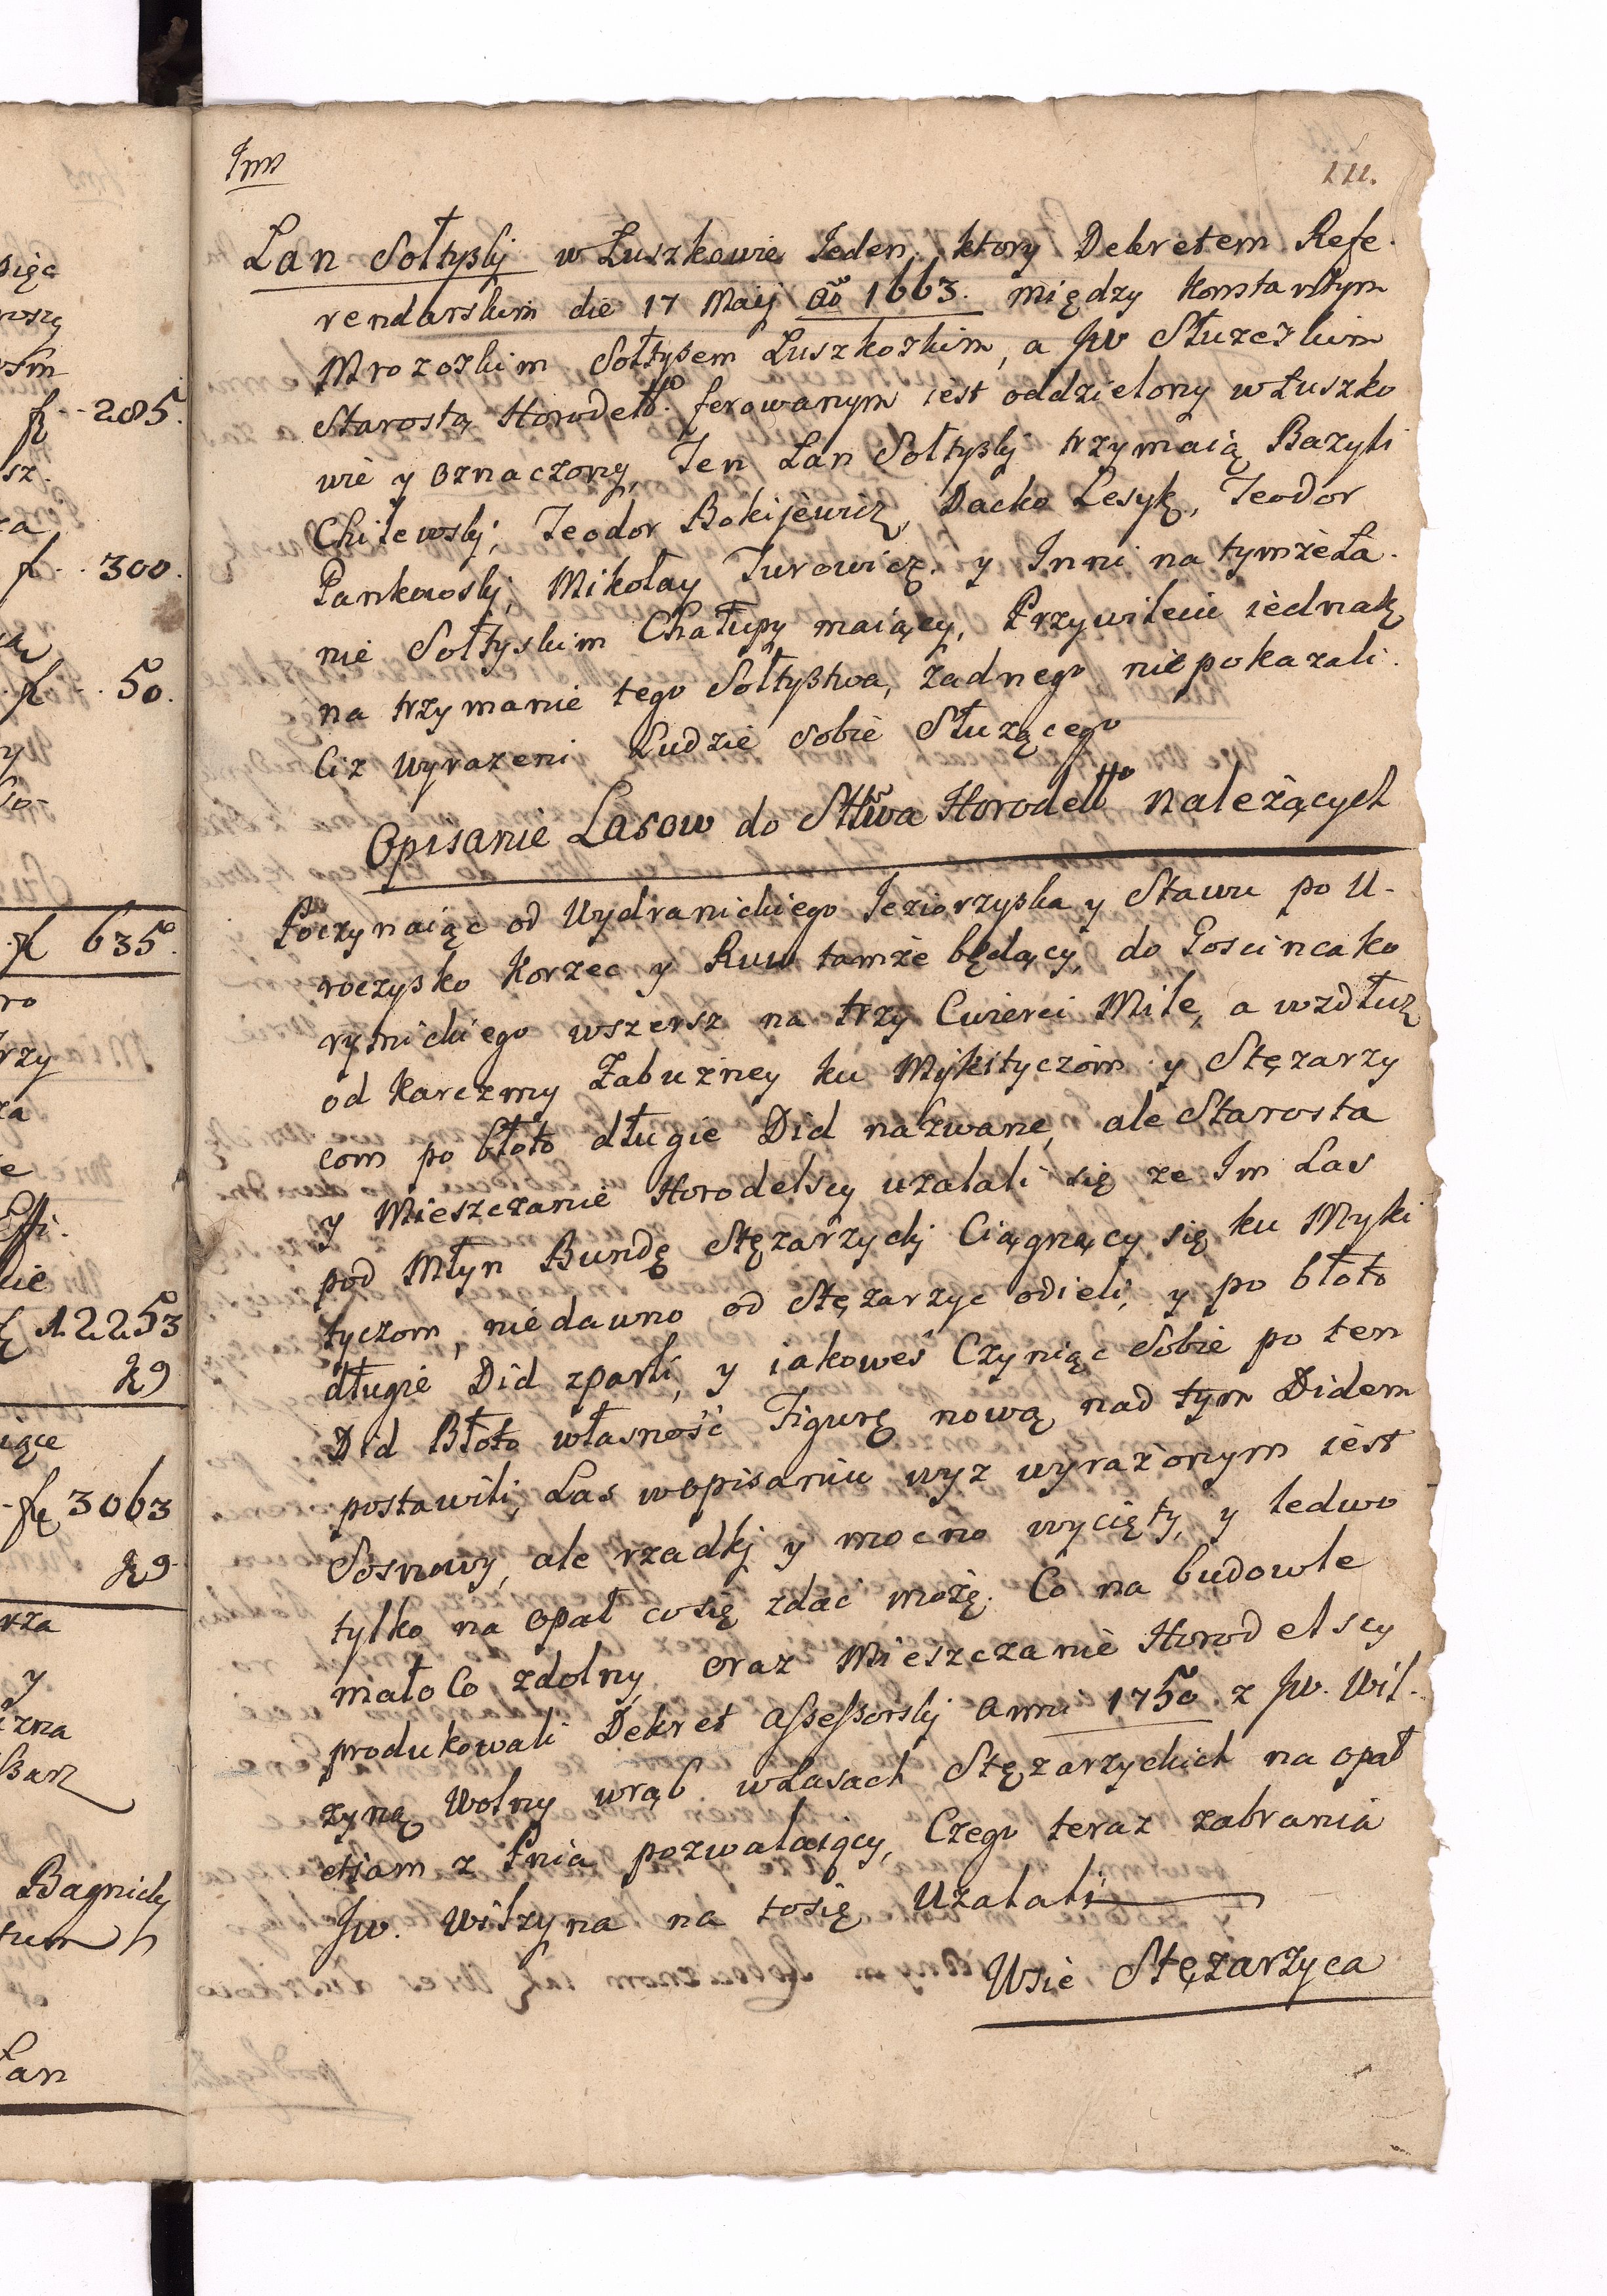 sięc
fl 285.
sz.
fl 300.
fl 50.
fl 635.
ro
rzy
za
ie
12253
29
iące
fl 3063
29
rza
y
izna
Barz
Bagnicky
tum
Łan
Imo
Łan Sołtysky w Łuszkowie Jeden, ktory Dekretem Refe-
rendarskim die 17 Maij Ao 1663. między Konstantym
Mrozoskim Sołtysem Łuszkoskim, a Jw Słuzeskim
Starostą Horodełło. ferowanym iest oddzielony w Łuszko
wie y oznaczony, Ten Łan Sołtysky trzymaią Bazyli
Chilewsky, Teodor Bokijewicz, Dacko Lesyk, Teodor
Pankowsky, Mikołay Jurowicz, y Inni na tymże Ła-
nie Sołtyskim Chałupy maiący, Przywileiu iednak
na trzymanie tego Sołtystwa, żadnego nie pokazali
Ciz wyrazeni Ludzie sobie Słuzącego
Opisanie Lasow do Sttwa Horodełło należących
Poczynaiąc od Wydranickiego Jeziorzyska y Stawu po U-
roczysko Korzec y Ruw tamże będący, do Goscinca ko
rytnickiego wszersz na trzy Cwierci Mile, a wzdłuż
od Karczmy Zabużney ku Mykityczom y Stęzarzy
com po błoto długie Did nazwane, ale Starosta
y Mieszczanie Horodelscy uzalali się ze Im Las
pod Młyn Bundę Stęzarzycky Ciągnący się ku Myki
tyczom, niedawno od Stęzarzyc odieli, y po błoto
długie Did zparli, y iakoweś Czyniąc Sobie po ten
Did Błoto własność Figurę nową nad tym Didem
postawili; Las w opisaniu wyz wyrażonym iest
Sosnowy, ale rzadky y mocno wycięty, y ledwo
tylko na opał co się zdać może. Co na budowle
mało Co zdolny, oraz Mieszczanie Horodelscy
produkowali Dekret Assessorsky Anni 1750 z Jw. Wil-
zyną Wolny wrąb w Lasach Stęzarzyckich na opał
etiam z Pnia pozwalaiący, Czego teraz zabrania
Jw. Wilzyna na to się Uzalali
Wsie Stęzarzyca